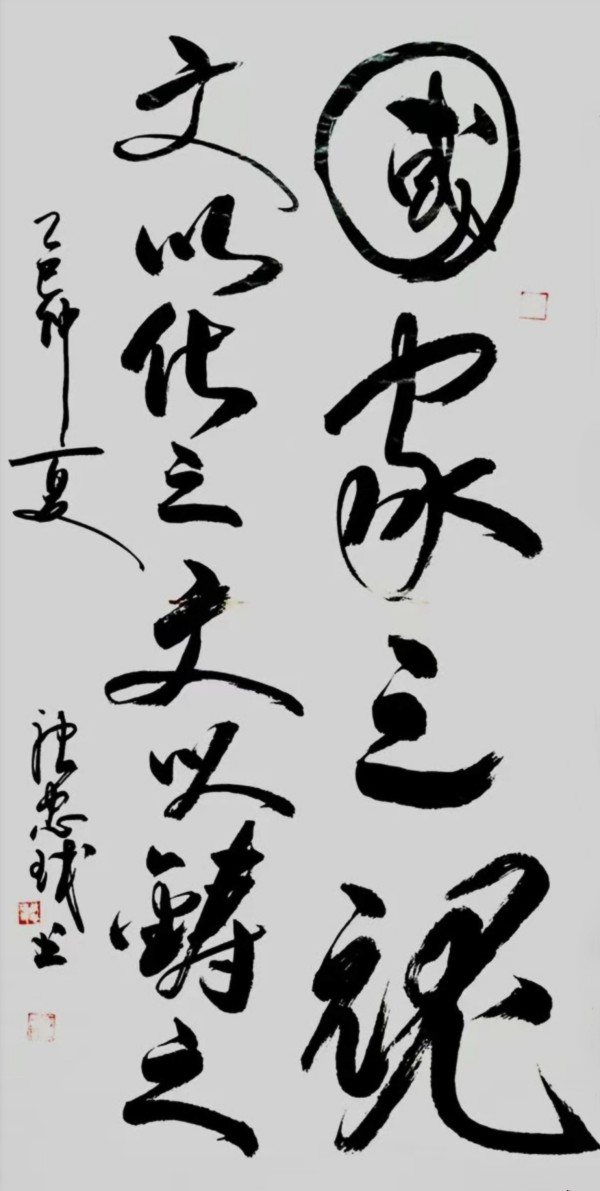 國家之魂
文以化之文以鑄之
乙巳仲夏
忠书